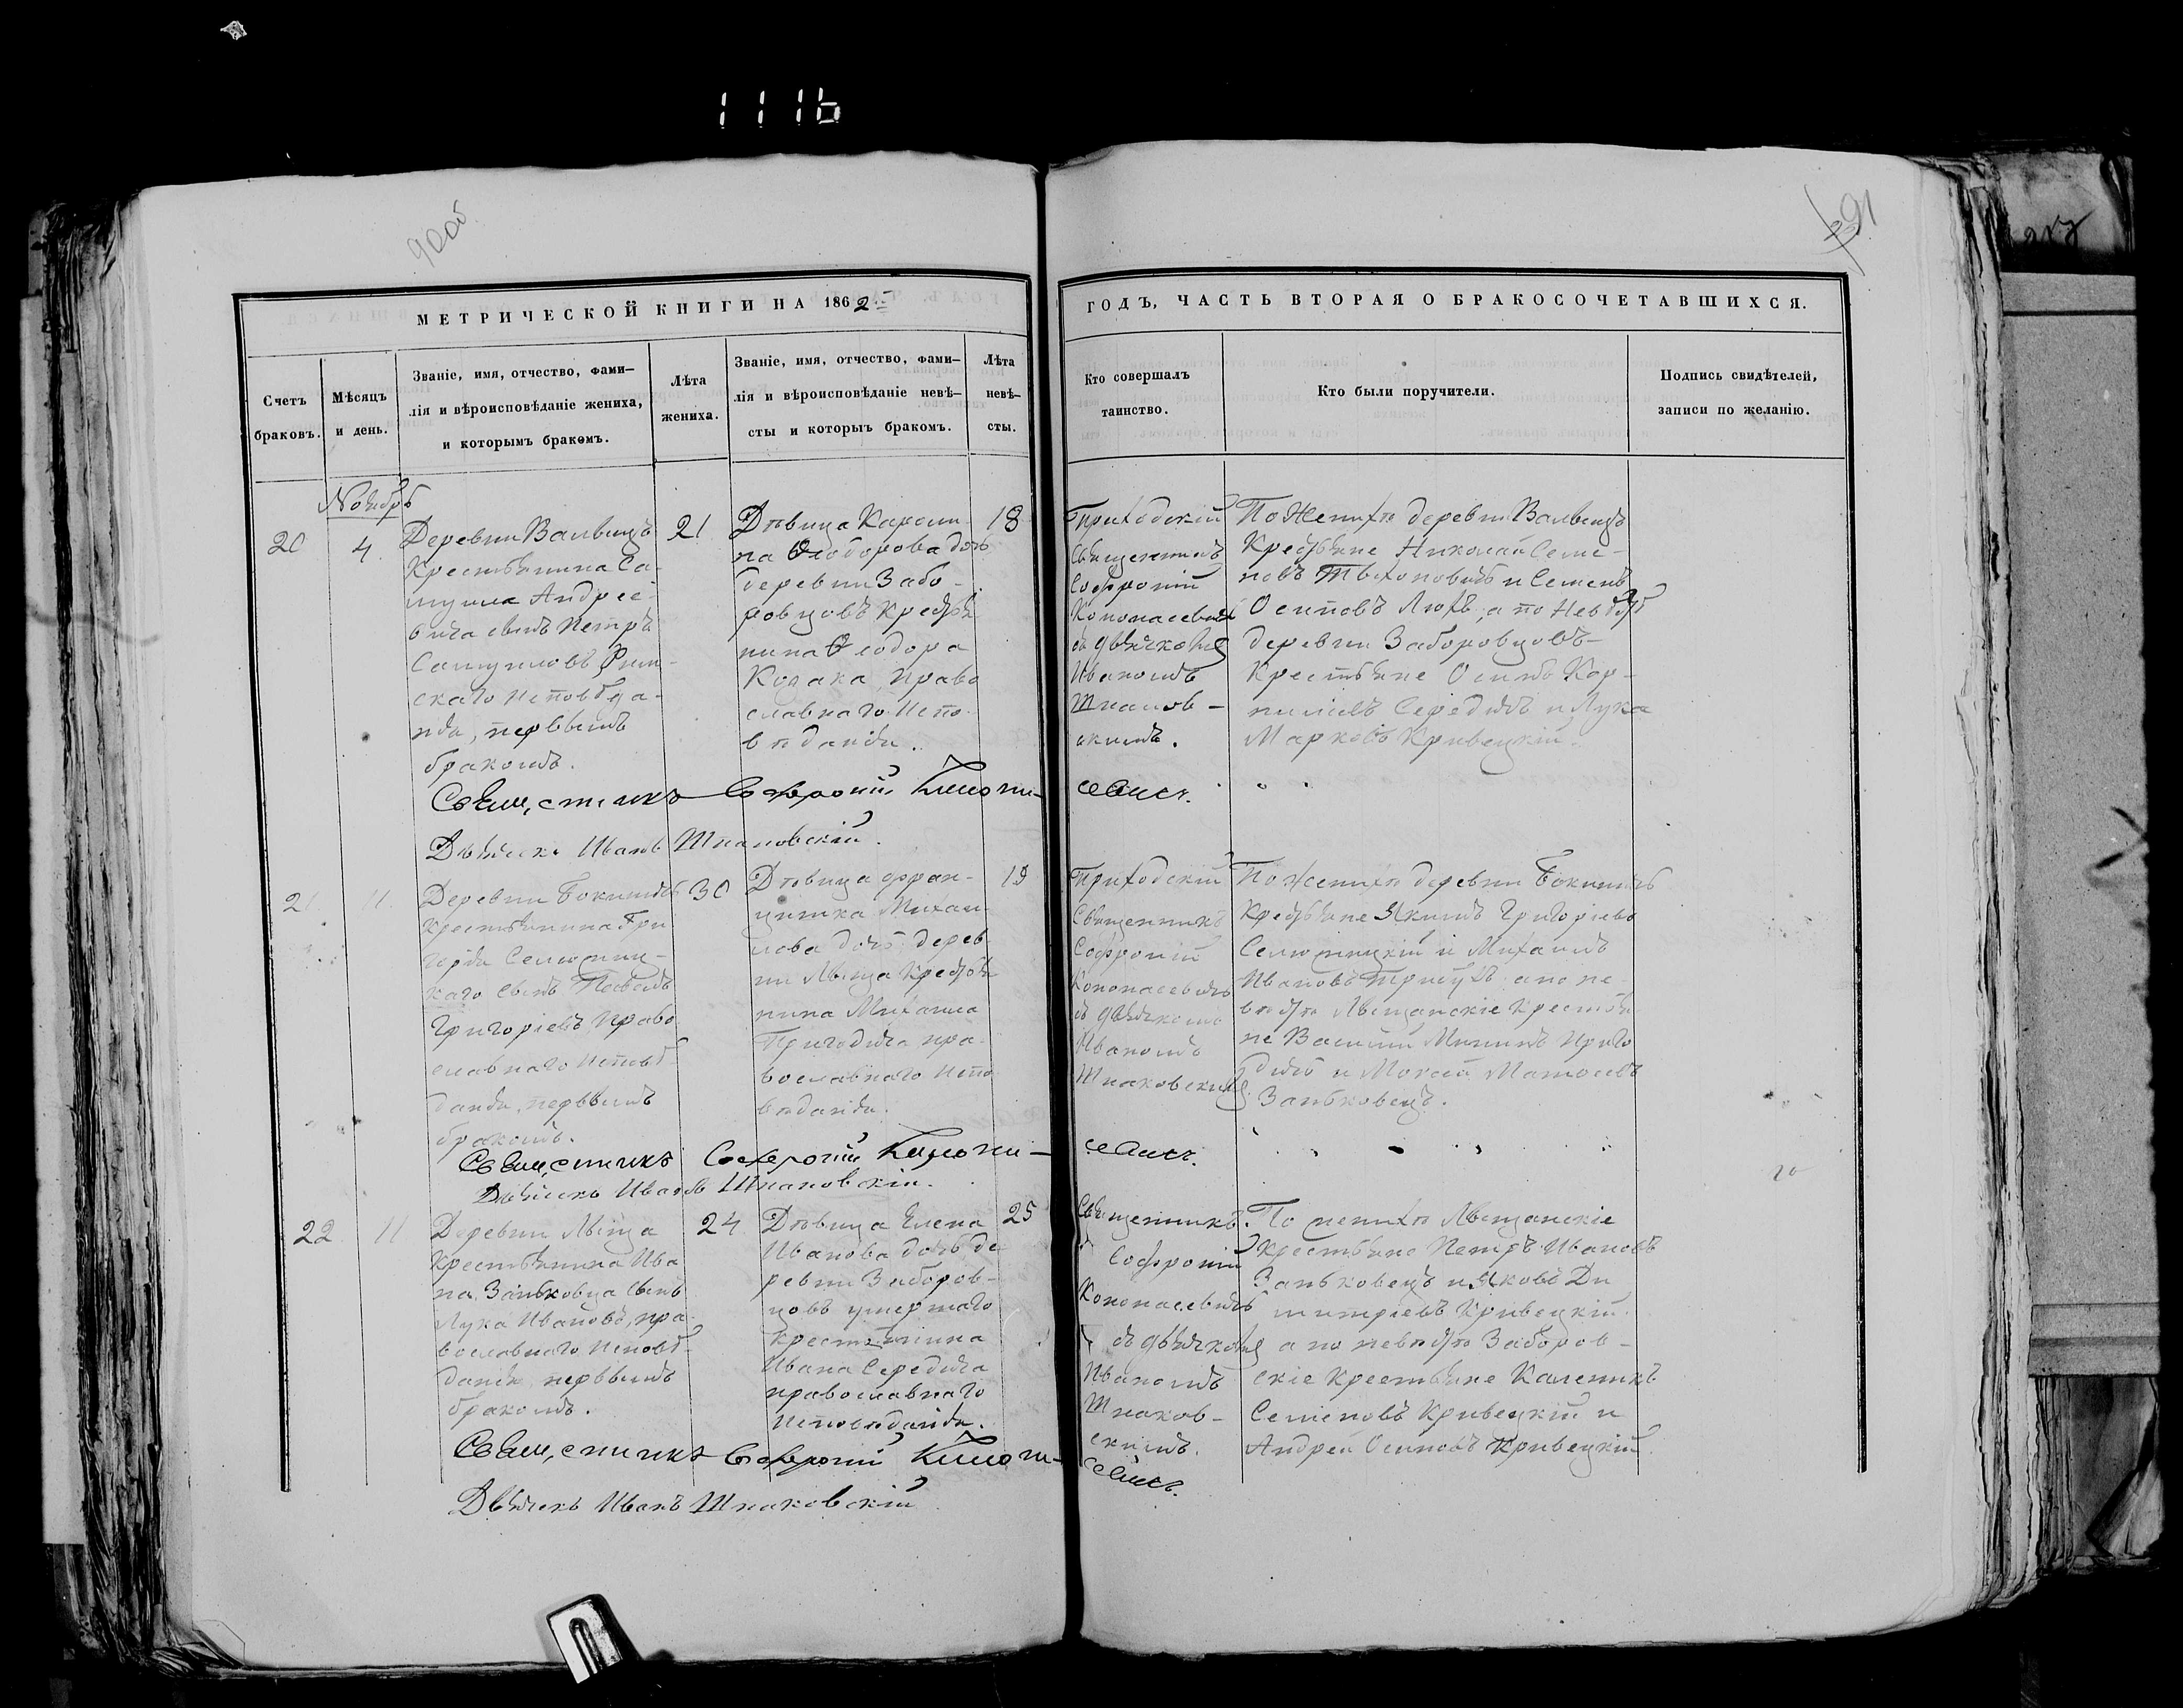 1116
90об
91
МЕТРИЧЕСКОЙ КНИГИ НА 1862
ГОДЪ, ЧАСТЬ ВТОРАЯ О БРАКОСОЧЕТАВШИХСЯ.
Счетъ
браковъ.
Мѣсяцъ
и день.
Званіе, имя, отчество, фами-
лія и вѣроисповѣданіе жениха,
и которымъ бракомъ.
Лѣта
жениха.
Званіе, имя, отчество, фами-
лія и вѣроисповѣданіе невѣ-
сты и которыъ бракомъ.
Лѣта
невѣ-
сты.
Кто совершалъ
таинство.
Кто были поручители.
Подпись свидѣтелей,
записи по желанію.
Ноябрь
20
4
Деревни
Крестьянина Са-
муила Андрее-
вича сынъ Петръ
Самуиловъ Рим-
скаго исповѣда-
нія, первымъ
бракомъ.
21
Дѣвица Кароли-
на Ѳеодорова дочь
деревни Забо-
ровцовъ крестья
нина Ѳеодора
Козака, право
славнаго испо-
вѣданія.
18
Приходскій
Священникъ
Софроній
Кононасевичь
съ дьячкомъ
Иваномъ
Шпаков-
скимъ.
По Женихѣ деревни
Крестьяне Николай Семе-
новъ и Семенъ
Осиповъ Люхъ, а по Невѣстѣ
деревни Заборовцовъ
Крестьяне Осипъ Кор-
ниловъ Середичъ и Лука
Марковъ Кривецкій.
Священникъ Софроній Конона-
севичъ.
Дьячекъ Иванъ Шпаковскій.
21
11
Деревни
Крестьянина Гри
горія
каго сынъ Павелъ
Григоріевъ, право
славнаго исповѣ-
данія, первымъ
бракомъ.
30
Дѣвица Фран-
цишка Михаи-
лова дочь дерев-
ни Лыща крестья
нина Михаила
Пригодича пра-
вославнаго испо
вѣданія.
19
Приходскій
Священникъ
Софроній
Кононасевичь
съ дьячкомъ
Иваномъ
Шпаковскимъ
По Женихѣ деревни
Крестьяне Якимъ Григоріевъ
и Михаилъ
Ивановъ а по не-
вѣстѣ Лыщанскіе Крестья
не Василій Минивъ Приго
дичь и Моисей Матѳеевъ
Заньковецъ.
Священникъ Софроній Конона-
севичъ.
Дьячекъ Иванъ Шпаковскій.
22
11
Деревни Лыща
Крестьянина Ива
на Заньковца сынъ
Лука Ивановъ, пра-
вославнаго исповѣ-
данія, первымъ
бракомъ.
24
Дѣвица Елена
Иванова дочь де-
ревни Заборов-
цовъ умершаго
крестьянина
Ивана Середича
православнаго
исповѣданія.
25
Священникъ
Софроній
Кононасевичь
съ дьячкомъ
Иваномъ
Шпаков-
скимъ.
По женихѣ Лыщанскіе
Крестьяне Петръ Ивановъ
Заньковецъ и Яковъ Ди
митріевъ Кривецкій
а по невѣстѣ Заборов-
скіе Крестьяне Каленикъ
Семеновъ Кривецкій и
Андрей Осиповъ Кривецкій
Священникъ Софроній Конона-
севичъ.
Дьячекъ Иванъ Шпаковскій